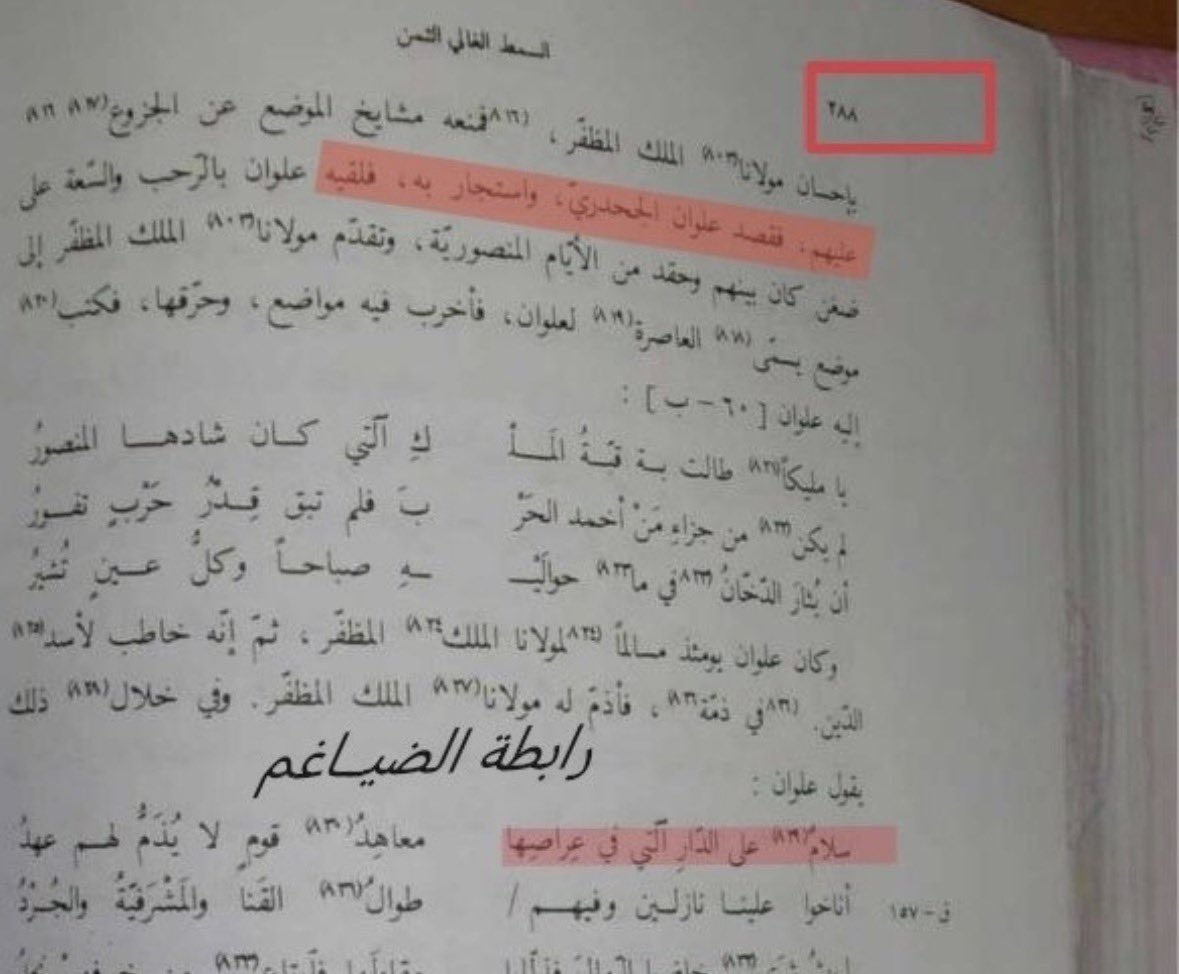 السمط الغالي الثمن
٢٨٨
بإحسان مولانا(٨٠٣) الملك المظفّر ، (٨١٦)فمنعه مشايخ الموضع عن الجزوع(٨١٧) ٨١٦)
عليهم ، فقصد علوان الجحدريّ ، واستجار به ، فلقيه علوان بالرّحب والسّعة على
ضغن كان بينهم وحقد من الأيّام المنصوريّة ، وتقدّم مولانا(٨٠٣) الملك المظفّر إلى
موضع يسمّى(٨١٨) العاصرة(٨١٩) لعلوان، فأخرب فيه مواضع ، وحرّقها، فكتب(٨٢٠)
إليه علوان [ ٦٠ – ب ] :
يا مليكاً(٨٢١) طالت بة قبّةُ المَلْـ ـكِ الّتي كان شادها المنصورُ
لم يكن(٨٢٢) من جزاءِ مَنْ أخمد الحَرْ بَ فلم تبق قِدْرُ حَرْبٍ تفورُ
أن يُثارَ الدّخّانُ (٨٢٣في ما٨٢٣) حوالَيْـ ـهِ صباحاً وكلُّ عينٍ تُشيرُ
وكان علوان يومئذ مسالماً (٨٢٤لمولانا الملك٨٢٤) المظفّر ، ثمّ إنّه خاطب لأسد(٨٢٥)
الدّين. (٨٢٦في ذمّة٨٢٦) ، فأذمّ له مولانا(٨٢٧) الملك المظفّر. وفي خلال(٨٢٨) ذلك
رابطة الضياغم
يقول علوان :
سلامٌ(٨٢٩) على الدّارِ الّتي في عِراصِها معاهِدُ(٨٣٠) قومٍ لا يُذَمُّ لهم عهدُ
أناخوا علينا نازلين وفيهم / طوالُ(٨٣١) القَنا والمَشْرَفيّةُ والجُرْدُ
ق – ١٥٧